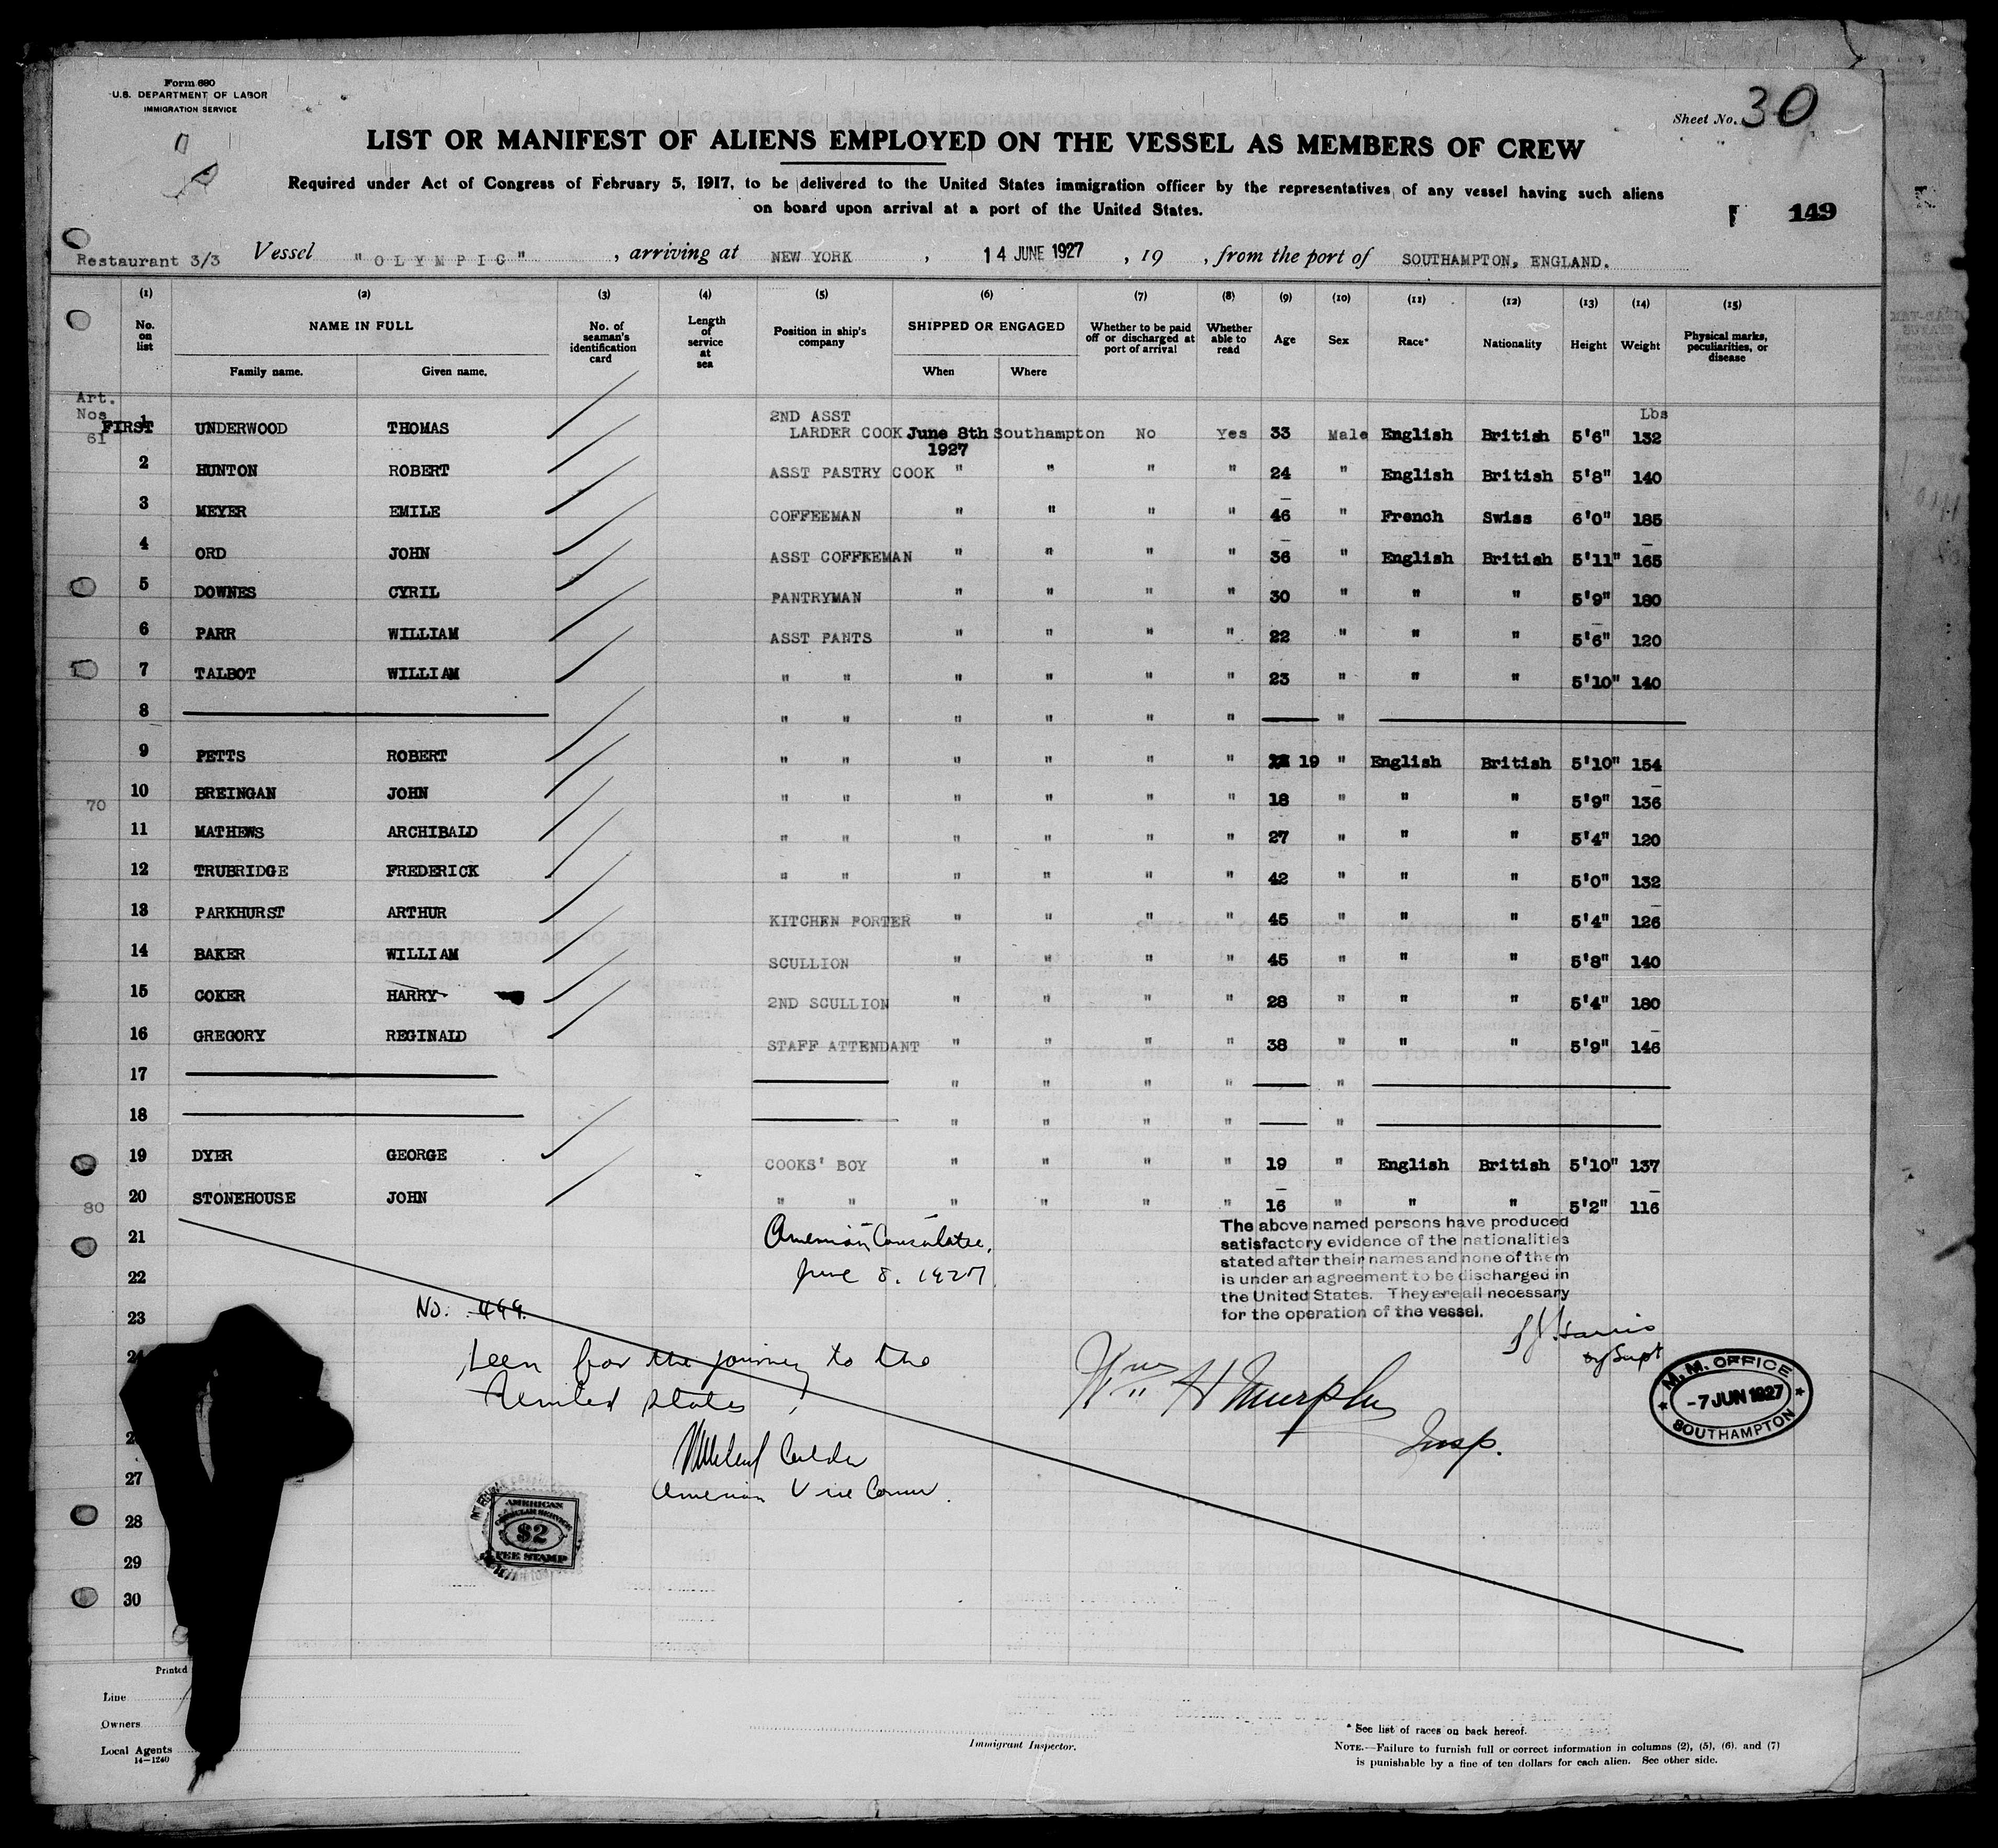 Form 680
U.S. DEPARTMENT OF LABOR
IMMIGRATION SERVICE
Sheet No. 30
LIST OR MANIFEST OF ALIENS EMPLOYED ON THE VESSEL AS MEMBERS OF CREW
Required under Act of Congress of February 5, 1917, to be delivered to the United States immigration officer by the representatives of any vessel having such aliens
on board upon arrival at a port of the United States.
149
Restaurant 3/3 Vessel "OLYMPIC", arriving at NEW YORK, 14 JUNE 1927, 19 , from the port of SOUTHAMPTON, ENGLAND.
(1) (2) (3) (4) (5) (6) (7) (8) (9) (10) (11) (12) (13) (14) (15)
No. on list NAME IN FULL Family name. Given name. No. of seaman's identification card Length of service at sea Position in ship's company SHIPPED OR ENGAGED When Where Whether to be paid off or discharged at port of arrival Whether able to read Age Sex Race* Nationality Height Weight Physical marks, peculiarities, or disease
Art. Nos Lbs
FIRST 61 1 UNDERWOOD THOMAS 2ND ASST LARDER COOK June 8th 1927 Southampton No Yes 33 Male English British 5'6" 132
2 HUNTON ROBERT ASST PASTRY COOK " " " " 24 " English British 5'8" 140
3 MEYER EMILE COFFEEMAN " " " " 46 " French Swiss 6'0" 185
4 ORD JOHN ASST COFFEEMAN " " " " 36 " English British 5'11" 165
5 DOWNES CYRIL PANTRYMAN " " " " 30 " " " 5'9" 180
6 PARR WILLIAM ASST PANTS " " " " 22 " " " 5'6" 120
7 TALBOT WILLIAM " " " " " " 23 " " " 5'10" 140
8 " " " " " " "
9 PETTS ROBERT " " " " " " 19 " English British 5'10" 154
70 10 BREINGAN JOHN " " " " " " 18 " " " 5'9" 136
11 MATHEWS ARCHIBALD " " " " " " 27 " " " 5'4" 120
12 TRUBRIDGE FREDERICK " " " " " " 42 " " " 5'0" 132
13 PARKHURST ARTHUR KITCHEN PORTER " " " " 45 " " " 5'4" 126
14 BAKER WILLIAM SCULLION " " " " 45 " " " 5'8" 140
15 COKER HARRY 2ND SCULLION " " " " 28 " " " 5'4" 180
16 GREGORY REGINALD STAFF ATTENDANT " " " " 38 " " " 5'9" 146
17 " " " " "
18 " " " " "
19 DYER GEORGE COOKS' BOY " " " " 19 " English British 5'10" 137
80 20 STONEHOUSE JOHN " " " " " " 16 " " " 5'2" 116
21 American Consulate,
22 June 8. 1927
The above named persons have produced
satisfactory evidence of the nationalities
stated after their names and none of them
is under an agreement to be discharged in
the United States. They are all necessary
for the operation of the vessel.
23 No. 499.
Seen for the journey to the
United States
Wm H Murphy
Insp.
Harris
Supt
M. M. OFFICE
-7 JUN 1927
SOUTHAMPTON
Calder
American Vice Consul.
27
28
29
30
AMERICAN
CONSULAR SERVICE
$2
FEE STAMP
Printed
Line
Owners
Local Agents
14—1240
Immigrant Inspector.
* See list of races on back hereof.
NOTE.—Failure to furnish full or correct information in columns (2), (5), (6), and (7)
is punishable by a fine of ten dollars for each alien. See other side.